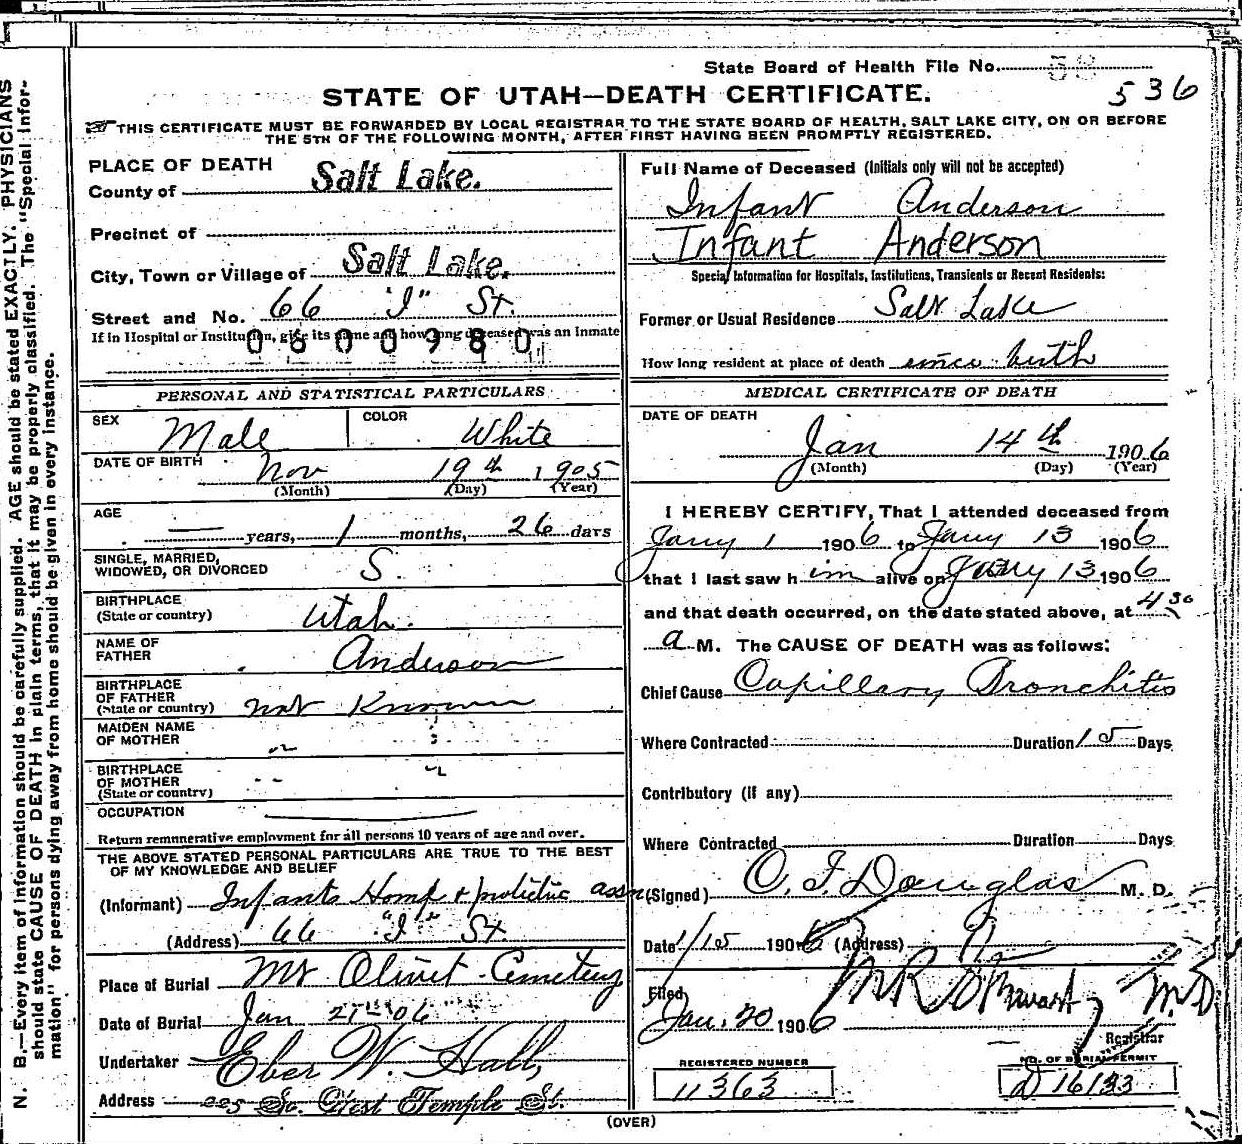 State Board of Health File No.
536
STATE OF UTAH—DEATH CERTIFICATE.
THIS CERTIFICATE MUST BE FORWARDED BY LOCAL REGISTRAR TO THE STATE BOARD OF HEALTH, SALT LAKE CITY, ON OR BEFORE
THE 5TH OF THE FOLLOWING MONTH, AFTER FIRST HAVING BEEN PROMPTLY REGISTERED.
N. B.—Every item of information should be carefully supplied. AGE should be stated EXACTLY. PHYSICIANS
should state CAUSE OF DEATH in plain terms, that it may be properly classified. The "Special Infor-
mation" for persons dying away from home should be given in every instance.
PLACE OF DEATH
County of Salt Lake.
Precinct of
City, Town or Village of Salt Lake.
Street and No. 66 "I" St.
If in Hospital or Institution, give its name and how long deceased was an inmate
0600980
PERSONAL AND STATISTICAL PARTICULARS
SEX Male COLOR White
DATE OF BIRTH Nov 19th 1905
(Month) (Day) (Year)
AGE
— years, 1 months, 26 days
SINGLE, MARRIED,
WIDOWED, OR DIVORCED S.
BIRTHPLACE
(State or country) Utah.
NAME OF
FATHER Anderson
BIRTHPLACE
OF FATHER
(State or country) not Known
MAIDEN NAME
OF MOTHER
BIRTHPLACE
OF MOTHER
(State or country)
OCCUPATION
Return remunerative employment for all persons 10 years of age and over.
THE ABOVE STATED PERSONAL PARTICULARS ARE TRUE TO THE BEST
OF MY KNOWLEDGE AND BELIEF
(Informant) Infants Home + protictic assn
(Address) 66 "I" St
Place of Burial Mt Olivet Cemetery
Date of Burial Jan 21st 06
Undertaker Eber W. Hall,
Address So. West Temple St.
Full Name of Deceased (Initials only will not be accepted)
Infant Anderson
Infant Anderson
Special Information for Hospitals, Institutions, Transients or Recent Residents:
Former or Usual Residence Salt Lake
How long resident at place of death since birth
MEDICAL CERTIFICATE OF DEATH
DATE OF DEATH
Jan 14th 1906
(Month) (Day) (Year)
I HEREBY CERTIFY, That I attended deceased from
Jany 1 1906 to Jany 13 1906
that I last saw him alive on Jany 13 1906
and that death occurred, on the date stated above, at 4 30
a M. The CAUSE OF DEATH was as follows:
Chief Cause Capillary Bronchitis
Where Contracted Duration 15 Days
Contributory (if any)
Where Contracted Duration Days
(Signed) O. F. Douglas M. D.
Date 1/15 1906 (Address)
Filed
Jan. 20 1906
M.D.
Registrar
REGISTERED NUMBER
11363
NO. OF BURIAL PERMIT
(OVER)